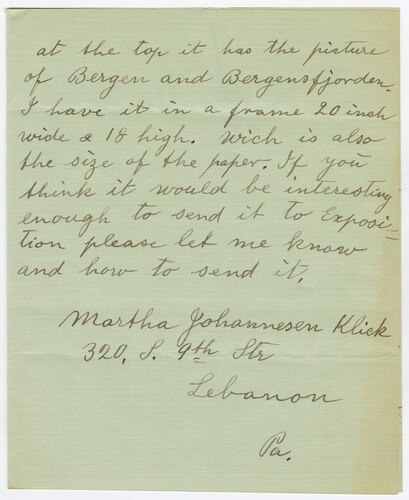 at the top it has the picture
of Bergen and Bergensfjorden.
I have it in a frame 20 inch
wide & 18 high. Wich is also
the size of the paper. If you
think it would be interesting
enough to send it to Exposi-
tion please let me know
and how to send it.
Martha Johannesen Klick
320, S. 9th Str
Lebanon
Pa.